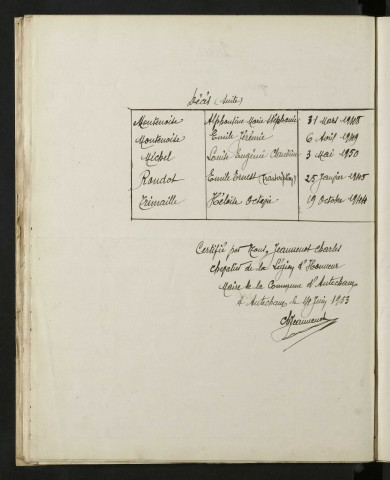 Décès (suite)
Montenoise Alphontine Marie Stéphanie 31 Mars 1948
Montenoise Emile Jérémie 6 Avril 1949
Michel Louise Eugénie Claudine 3 Mai 1950
Roudot Emile Ernest (Transcription) 25 Janvier 1945
Trimaille Héloïse Octavie 19 Octobre 1944
Certifié par Nous, Jeannenot Charles
Chevalier de la Légion d'Honneur
Maire de la Commune d'Autechaux
A Autechaux le Juin 1953
Jeannenot